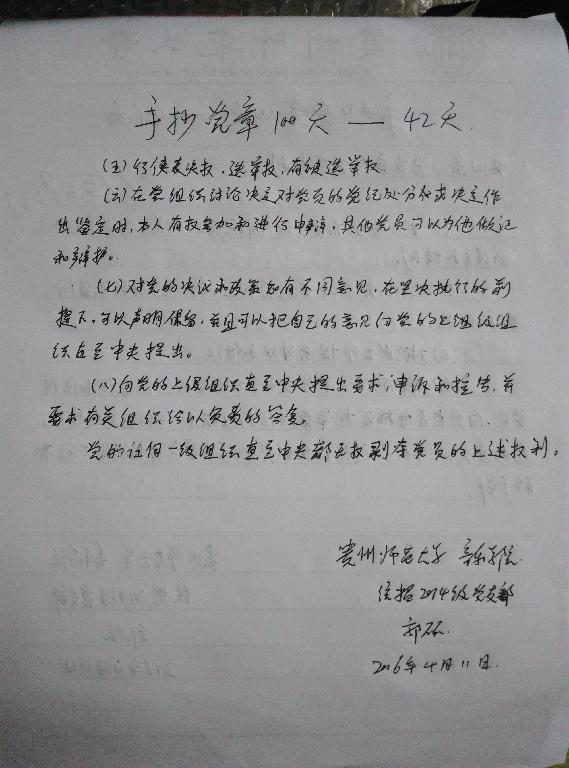 手抄党章100天 — 42天
(五)行使表决权,选举权,有被选举权
(六)在党组织讨论决定对党员的党纪处分或决定作
出鉴定时,本人有权参加和进行申辩,其他党员可以为他做证
和辩护。
(七)对党的决议和政策如有不同意见,在坚决执行的前
提下,可以声明保留,并且可以把自己的意见向党的上级组
织直至中央提出。
(八)向党的上级组织直至中央提出要求,申诉和控告,并
要求有关组织给以负责的答复。
党的任何一级组织直至中央都无权剥夺党员的上述权利。
贵州师范大学 音乐学院
统招2014级党支部
2016年4月11日